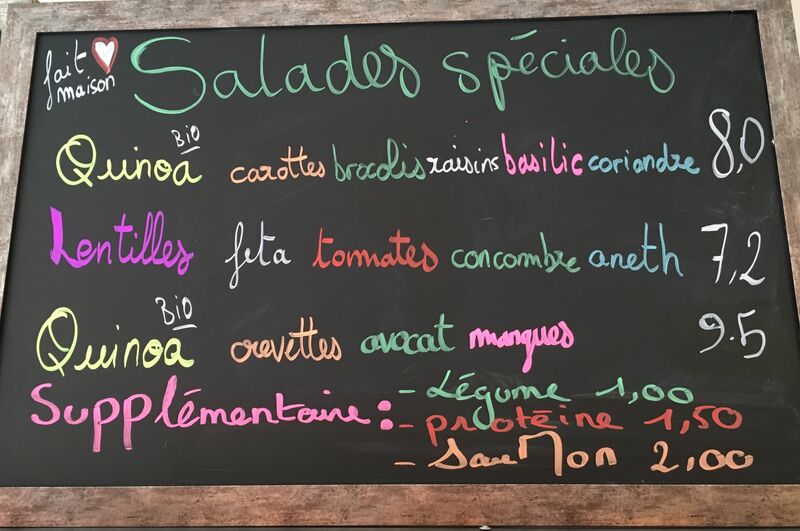 fait maison
Salades spéciales
Quinoa Bio carottes brocolis raisins basilic coriandre 8,0
Lentilles feta tomates concombre aneth 7,2
Quinoa Bio crevettes avocat mangues 9.5
Supplémentaire : - Légume 1,00
- protéine 1,50
- Saumon 2,00